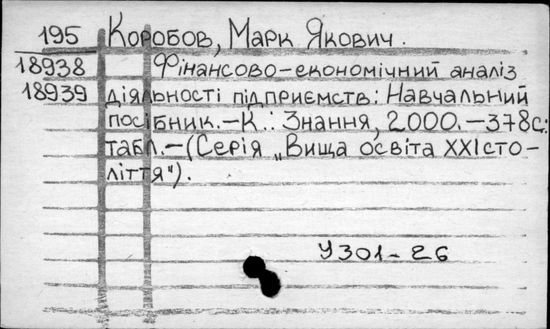 195 Коробов, Марк Якович.
18938 Фінансово-економічний аналіз
18939 діяльності підприємств: Навчальний
посібник.-К.: Знання, 2000.-378с.:
табл.-(Серія „Вища освіта XXI сто-
ліття").
У301-26